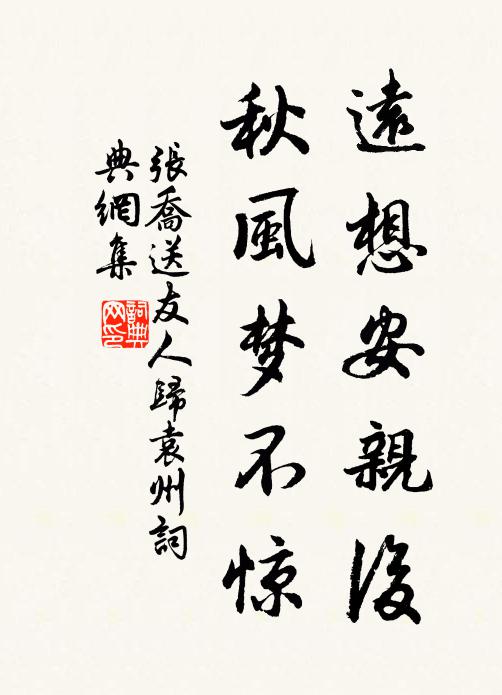 遠想安親後
秋風梦不惊
張喬送友人歸袁州詞
典網集
詞典
网印